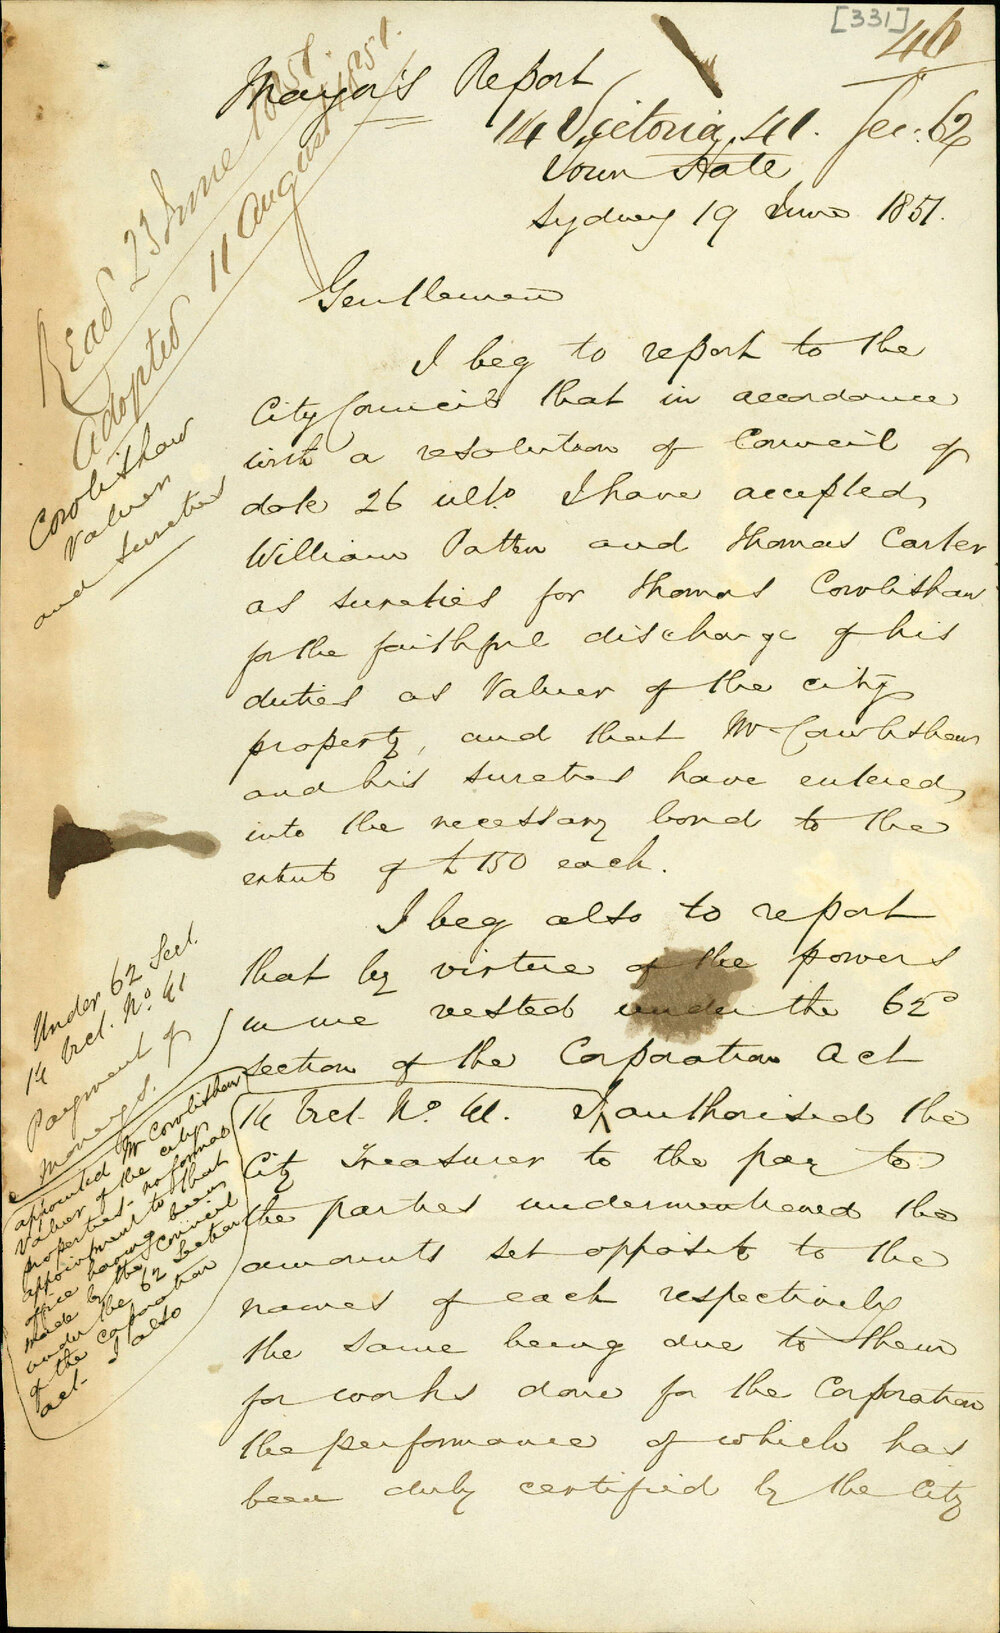 [331]
46
Mayor's Report
14 Victoria 41. Sec. 62
Town Hall
Sydney 19 June 1851.
Read 23 June 1851.
Adopted 11 August 1851.
Cowlishaw
Valuer
and sureties
Gentlemen
I beg to report to the
City Council that in accordance
with a resolution of Council of
date 26 ulto. I have accepted
William Patten and Thomas Carter
as sureties for Thomas Cowlishaw
for the faithful discharge of his
duties as Valuer of the city
property, and that Mr Cowlishaw
and his sureties have entered
into the necessary bond to the
extent of £150 each.
I beg also to report
that by virtue of the powers
in me vested under the 62d
section of the Corporation Act
14 Vict. No. 41. I authorised the
City Treasurer to the pay to
the parties undermentioned the
amounts set opposite to the
names of each respectively
the same being due to them
for works done for the Corporation
the performance of which has
been duly certified by the City
Under 62 Sect.
14 Vict. No. 41
Payment of
moneys.
appointed Mr Cowlishaw
Valuer of the city
properties - no formal
appointment to that
office having been
made by the Council
under the 62 Section
of the Corporation
act - I also